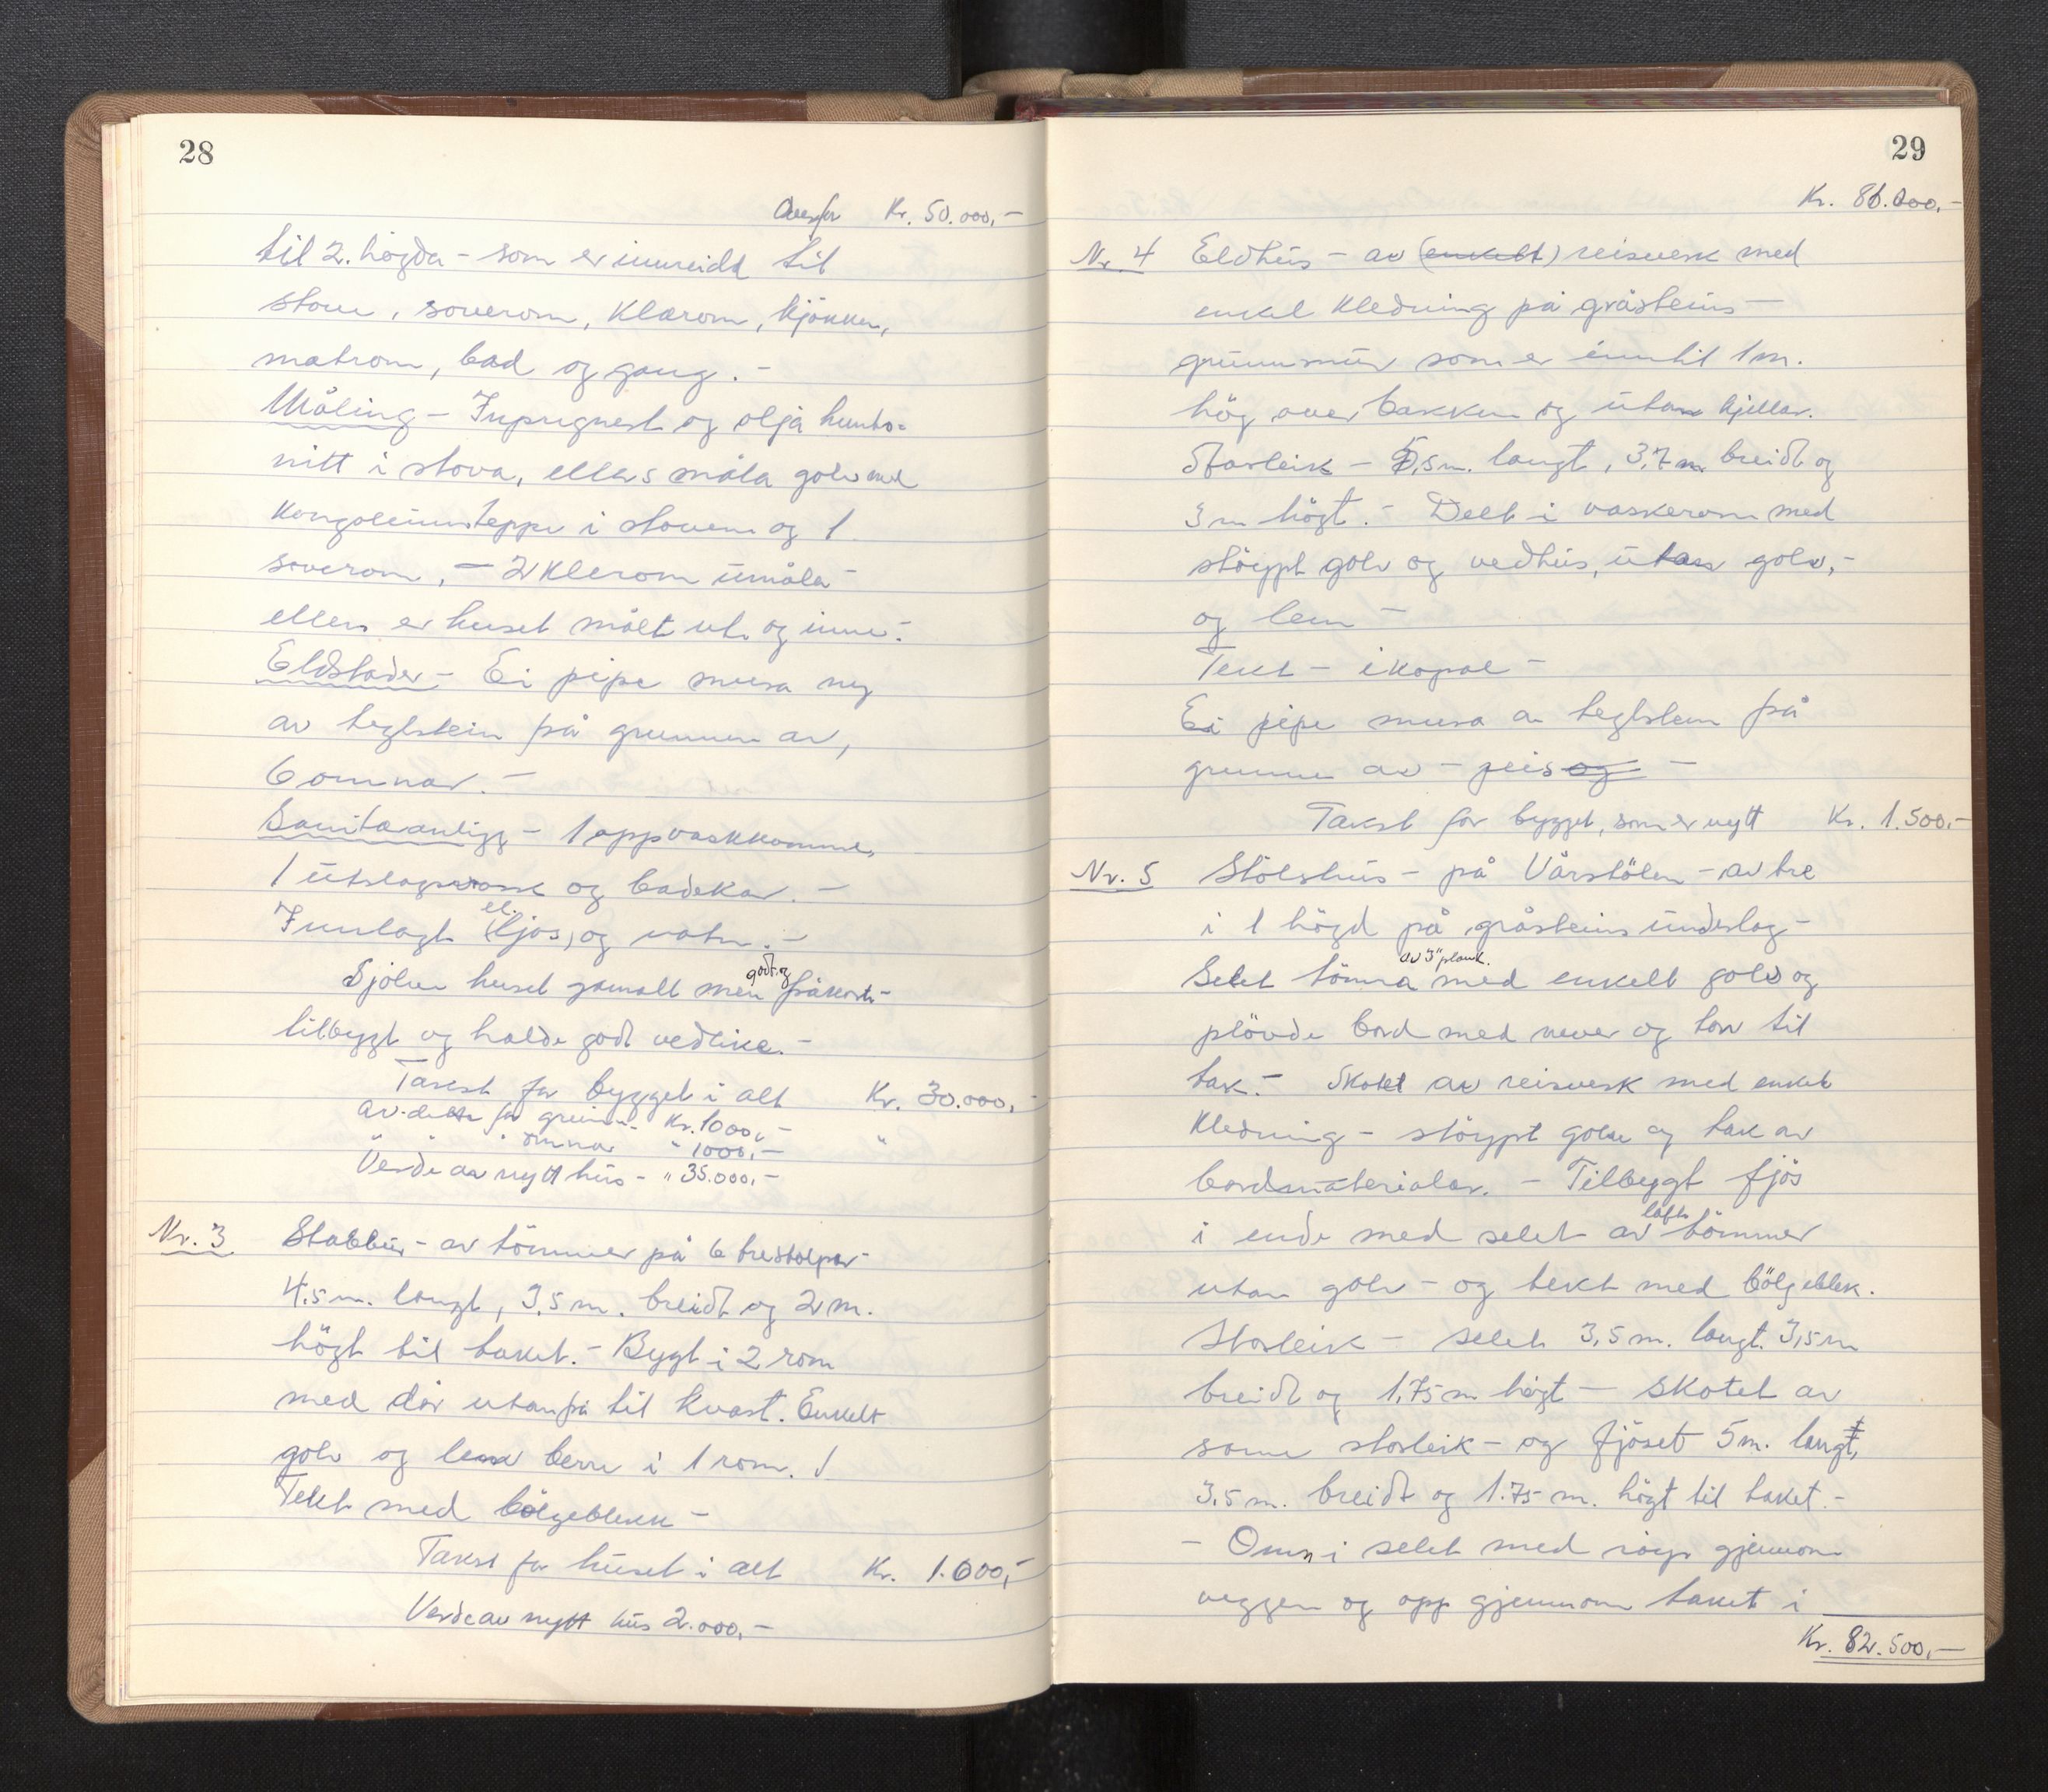 28
Overfør Kr. 50.000,-
til 2. høgda - som er innreidd til
stove, soverom, klærom, kjøkken,
matrom, bad og gang. -
Måling - Inpregnert og olja hunto-
nitt i stova, ellers måla golv med
kongoleumsteppe i stovene og 1
soverom, - 2 klerom umåla -
ellers er huset målt ute og inne. -
Eldstader - Ei pipe mura ny
av teglstein på grunnen av,
6 omnar. -
Sanitæranlegg - 1 oppvaskkomme,
1 utslagsvask og badekar. -
Innlagt (el. ljos) og vatn. -
Sjølve huset gamalt men godt og
tilbygt og halde godt vedlike. -
Takst for bygget i alt Kr. 30.000,-
av dette for grunn - Kr. 1000,-
" " " omnar " 1000,- "
Verde av nytt hus - " 35.000,-
Nr. 3 Stabbur - av tömmer på 6 trestolpar -
4,5 m. langt, 3,5 m. breidt og 2 m.
högt til taket. - Bygt i 2 rom
med dör utanfrå til kvart. Enkelt
golv og lem berre i 1 rom.
Tekt med bölgeblekk -
Takst for huset i alt Kr. 1.000,-
Verde av nytt hus 2.000,-
29
Kr. 81.000,-
Nr 4 Eldhus - av (enkelt) reisverk med
enkel kledning på gråsteins -
grunnmur som er inntil 1 m.
hög over bakken og utan kjellar.
Storleik - 5,5 m. langt, 3,7 m breidt og
3 m högt. - Delt i vaskerom med
støypt golv og vedhus, utan golv, -
og lem -
Tekt - ikopal -
Ei pipe mura av teglstein på
grunnen av - peis og -
Takst for bygget, som er nytt Kr. 1.500,-
Nr. 5 Stölshus - på Vårstölen - av tre
i 1 högd på gråsteins underlag -
Selet tömra av 3" plank. med enkelt golv og
plövde bord med never og torv til
tak. - Skotet av reisverk med enkel
kledning - støypt golv og tak av
bordmaterialar. - Tilbygt fjös
i ende med selet av lafte tömmer
utan golv - og tekt med bölgeblek.
Storleik - selet 3,5 m. langt. 3,5 m
breidt og 1,75 m högt - skotet av
same storleik - og fjöset 5 m. langt,
3,5 m. breidt og 1.75 m. högt til taket. -
- Omn i selet med röyr gjennom
veggen og opp gjennom taket i
Kr. 82.500,-